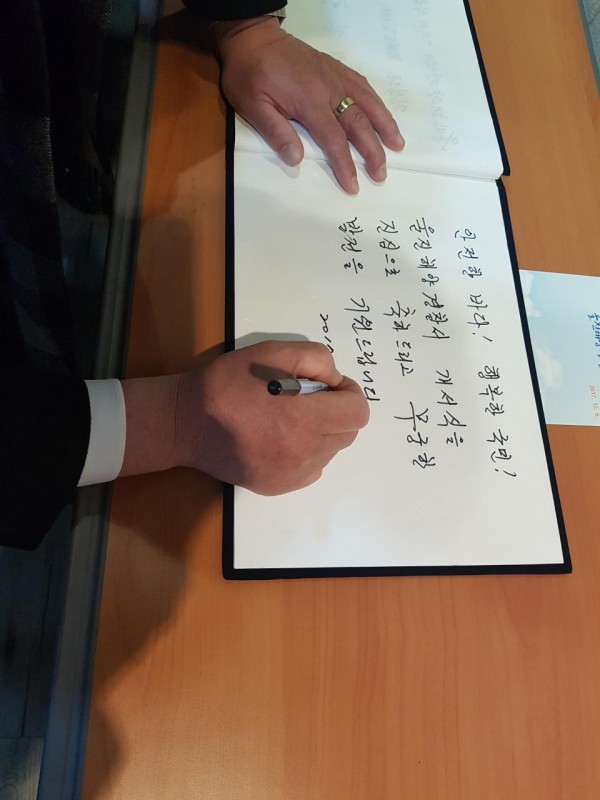 안전한 바다! 행복한 국민!
울진해양경찰서 개서식을
진심으로 축하드리고 무궁한
발전을 기원드립니다
201
울진해양
2017. 12.